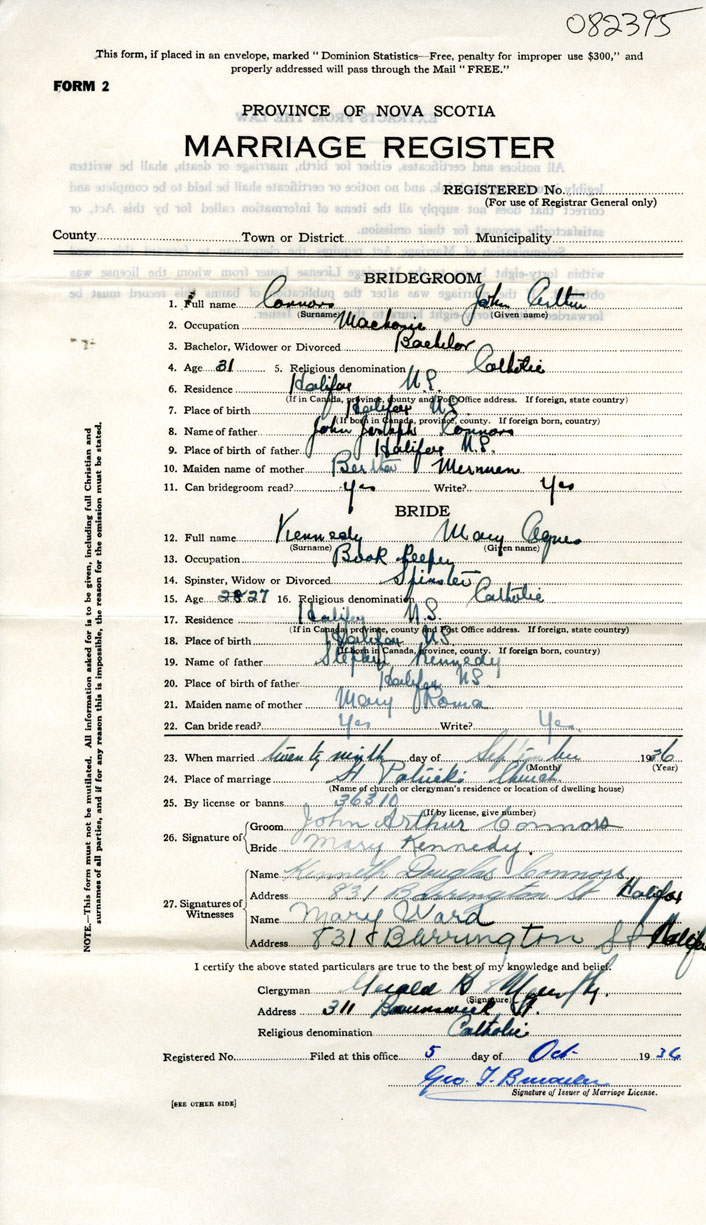 082395
This form, if placed in an envelope, marked "Dominion Statistics—Free, penalty for improper use $300," and
properly addressed will pass through the Mail "FREE."
FORM 2
PROVINCE OF NOVA SCOTIA
MARRIAGE REGISTER
REGISTERED No.
(For use of Registrar General only)
County Town or District Municipality
BRIDEGROOM
1. Full name Connors John Arthur
(Surname) (Given name)
2. Occupation
3. Bachelor, Widower or Divorced Bachelor
4. Age 31 5. Religious denomination Catholic
6. Residence Halifax N.S.
(If in Canada, province, county and Post Office address. If foreign, state country)
7. Place of birth Halifax N.S.
(If born in Canada, province, county. If foreign born, country)
8. Name of father John Joseph Connors
9. Place of birth of father Halifax N.S.
10. Maiden name of mother Bertha
11. Can bridegroom read? yes Write? yes
BRIDE
12. Full name Kennedy Mary Agnes
(Surname) (Given name)
13. Occupation Book keeper
14. Spinster, Widow or Divorced Spinster
15. Age 28 27 16. Religious denomination Catholic
17. Residence Halifax N.S.
(If in Canada, province, county and Post Office address. If foreign, state country)
18. Place of birth Halifax N.S.
(If born in Canada, province, county. If foreign born, country)
19. Name of father Stephen Kennedy
20. Place of birth of father Halifax N.S.
21. Maiden name of mother Mary Roma
22. Can bride read? Yes Write? Yes
23. When married twenty ninth day of September 1936
(Month) (Year)
24. Place of marriage St Patrick's Church
(Name of church or clergyman's residence or location of dwelling house)
25. By license or banns 36310
(If by license, give number)
26. Signature of Groom John Arthur Connors
Bride Mary Kennedy.
27. Signatures of Witnesses Name Kenneth Douglas Connors
Address 831 Barrington St Halifax
Name Mary Ward
Address 831 Barrington St Halifax
I certify the above stated particulars are true to the best of my knowledge and belief.
Clergyman Gerald B Murphy
(Signature)
Address 311 Brunswick St.
Religious denomination Catholic
Registered No. Filed at this office 5 day of Oct 1936
Geo. T.
Signature of Issuer of Marriage License.
[SEE OTHER SIDE]
NOTE.—This form must not be mutilated. All information asked for is to be given, including full Christian and
surnames of all parties, and if for any reason this is impossible, the reason for the omission must be stated.